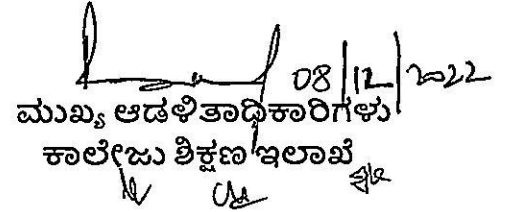 08/12/2022
ಮುಖ್ಯ ಆಡಳಿತಾಧಿಕಾರಿಗಳು
ಕಾಲೇಜು ಶಿಕ್ಷಣ ಇಲಾಖೆ